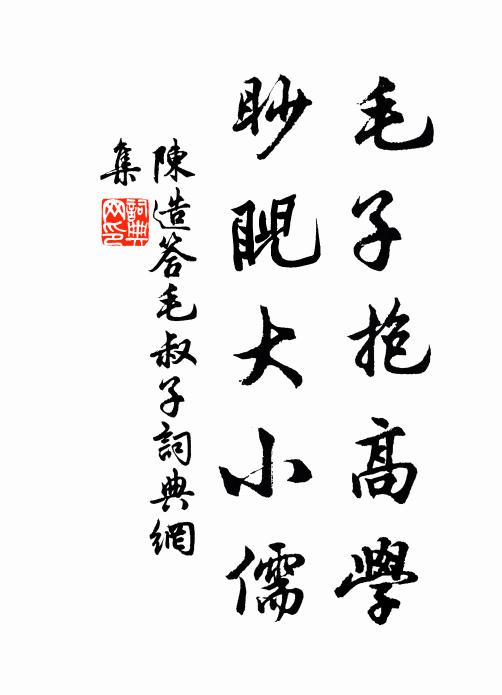 毛子抱高學
眇睨大小儒
陳造答毛叔子詞典網
集
詞典網印